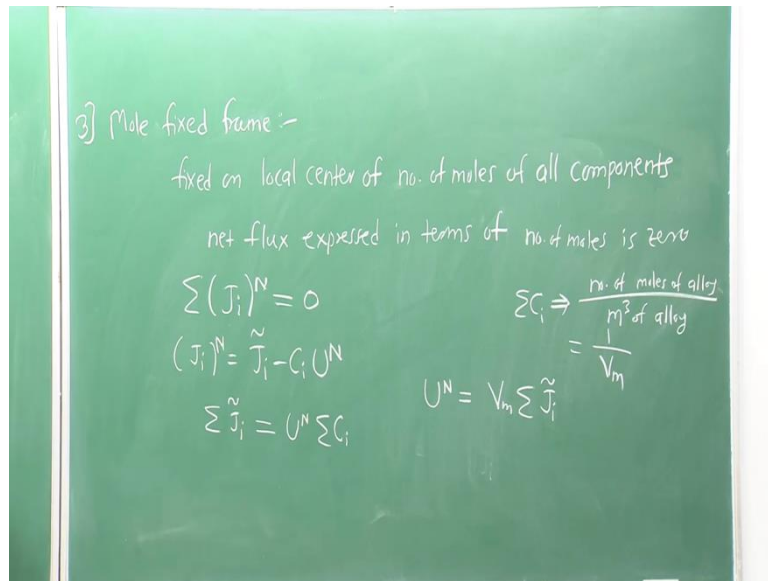 3] Mole fixed frame :-
fixed on local center of no. of moles of all components
net flux expressed in terms of no. of moles is zero
Σ(J_i)^N = 0
(J_i)^N = J̃_i - C_i U^N
Σ J̃_i = U^N Σ C_i
ΣC_i ⇒ no. of moles of alloy / m³ of alloy
= 1 / V_m
U^N = V_m Σ J̃_i